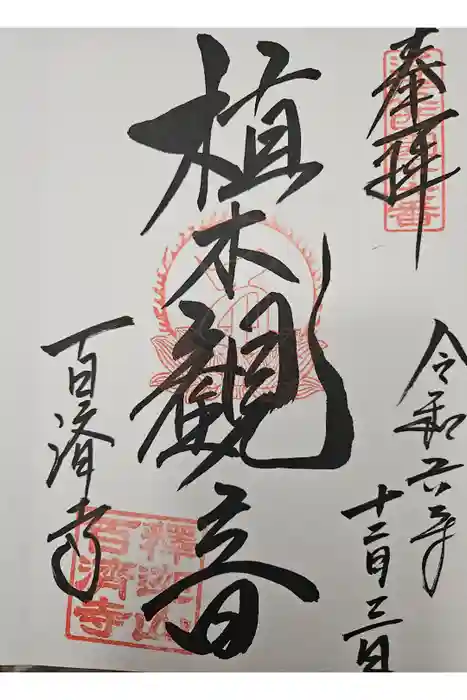 奉拝
令和六年
十二月三日
植木観音
百済寺
釋迦山
百濟寺